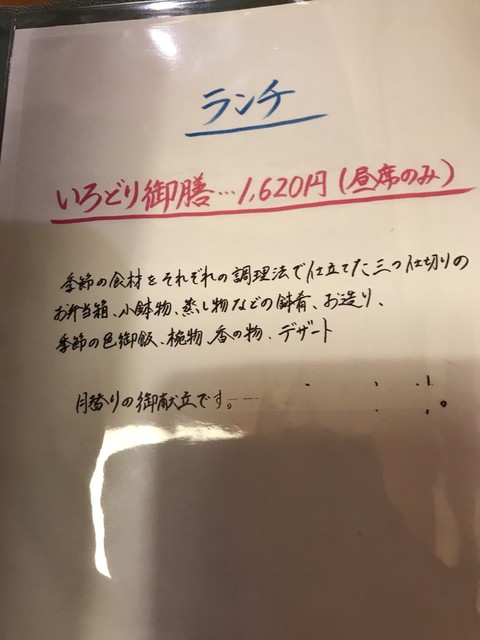 ランチ
いろどり御膳…1,620円(昼席のみ)
季節の食材をそれぞれの調理法で仕立てた三つ仕切りの
お弁当箱、小鉢物、蒸し物などの鉢肴、お造り、
季節の色御飯、椀物、香の物、デザート
月替りの御献立です。